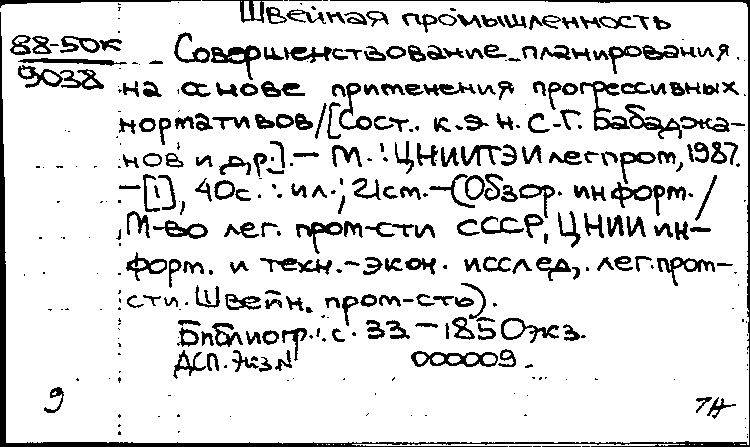 Швейная промышленность
88-50к
9038
Совершенствование планирования
на основе применения прогрессивных
нормативов/[Сост. к.э.н. С.Г. Бабаджа-
нов и др.].- М.: ЦНИИТЭИлегпром, 1987.
-[1], 40с.: ил.; 21см.-(Обзор. информ./
М-во лег. пром-сти СССР, ЦНИИ ин-
форм. и техн.-экон. исслед. лег. пром-
сти. Швейн. пром-сть).
Библиогр.: с. 33 - 1850экз.
ДСП. Экз. N 000009.
9